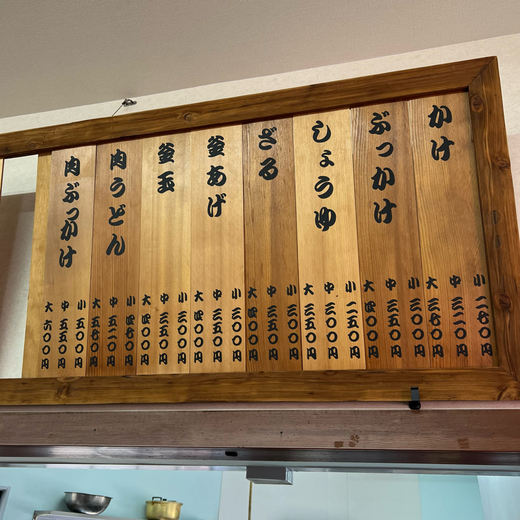 かけ
小 二七〇円
中 三二〇円
大 三七〇円
ぶっかけ
小 三〇〇円
中 三五〇円
大 四〇〇円
しょうゆ
小 二五〇円
中 三〇〇円
大 三五〇円
ざる
小 三〇〇円
中 三五〇円
大 四〇〇円
釜あげ
小 三〇〇円
中 三五〇円
大 四〇〇円
釜玉
小 三〇〇円
中 三五〇円
大 四〇〇円
肉うどん
小 四七〇円
中 五二〇円
大 五七〇円
肉ぶっかけ
小 五〇〇円
中 五五〇円
大 六〇〇円